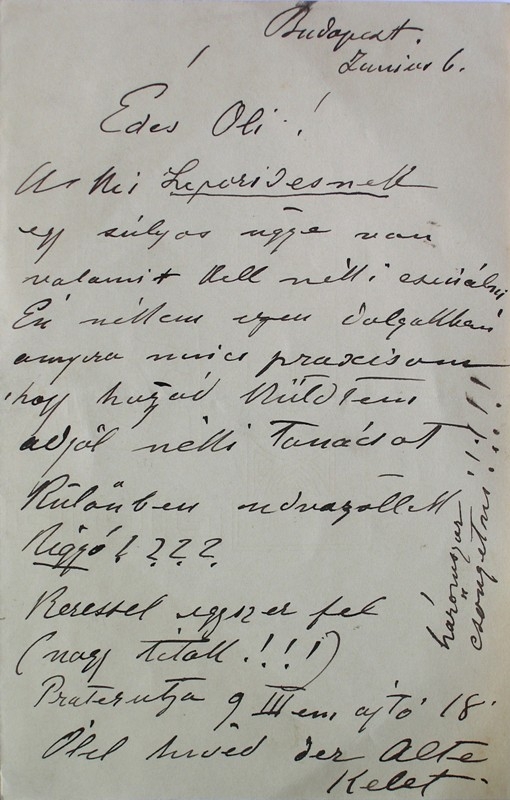 Budapest.
Junius 6.
Édes Oli!
A kis Leporidesnek
egy súlyos ügye van
valamit kell neki csinálni
Én nékem ezen dolgokban
annyira nincs praxisom
hogy hozzád küldtem
adjál néki Tanácsot
Különben üdvözöllek
Rigjó! ? ? ?
Keressel egyszer fel
(nagy titok!!!)
Prater utja 9 III em ajtó 18
Ölel híved der Alte
Kelet.
háromszor
csöngetni!!!!